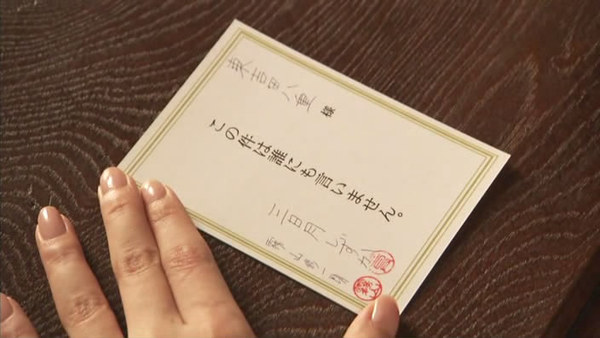 八重 様
この件は誰にも言いません。
三日月しずか
霧山修一朗